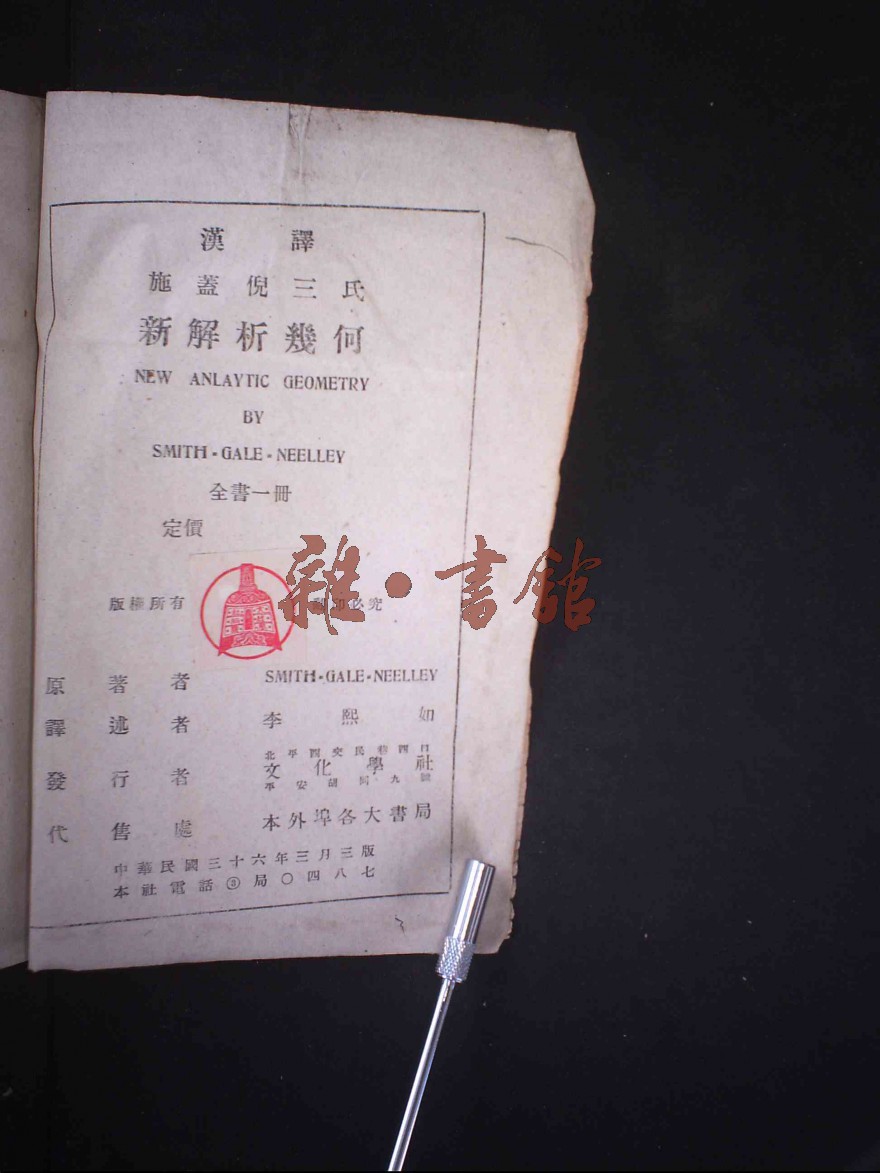 漢譯
施蓋倪三氏
新解析幾何
NEW ANLAYTIC GEOMETRY
BY
SMITH-GALE-NEELLEY
全書一冊
定價
版權所有 印必究
雜·書館
原著者 SMITH-GALE-NEELLEY
譯述者 李熙如
北平西交民巷西口
發行者 文化學社
平安胡同九號
代售處 本外埠各大書局
中華民國三十六年三月三版
本社電話③局〇四八七